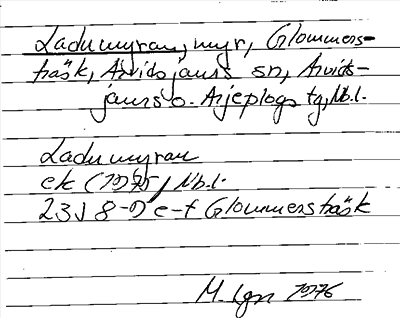 Ladumyran, myr, Glommers-
träsk, Arvidsjaurs sn, Arvids-
jaurs o. Arjeplogs tg, Nb.l.
Ladumyran
ek (1975) Nb.l.
23J 8-9 e-f Glommersträsk
M. 1976